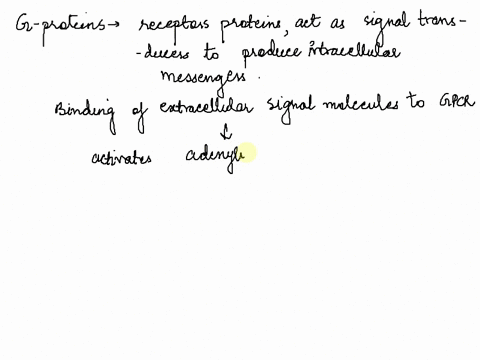 G-proteins → receptors proteins, act as signal trans-
-ducers to produce intracellular
messengers.
Binding of extracellular signal molecules to GPCR
↓
activates adenyl